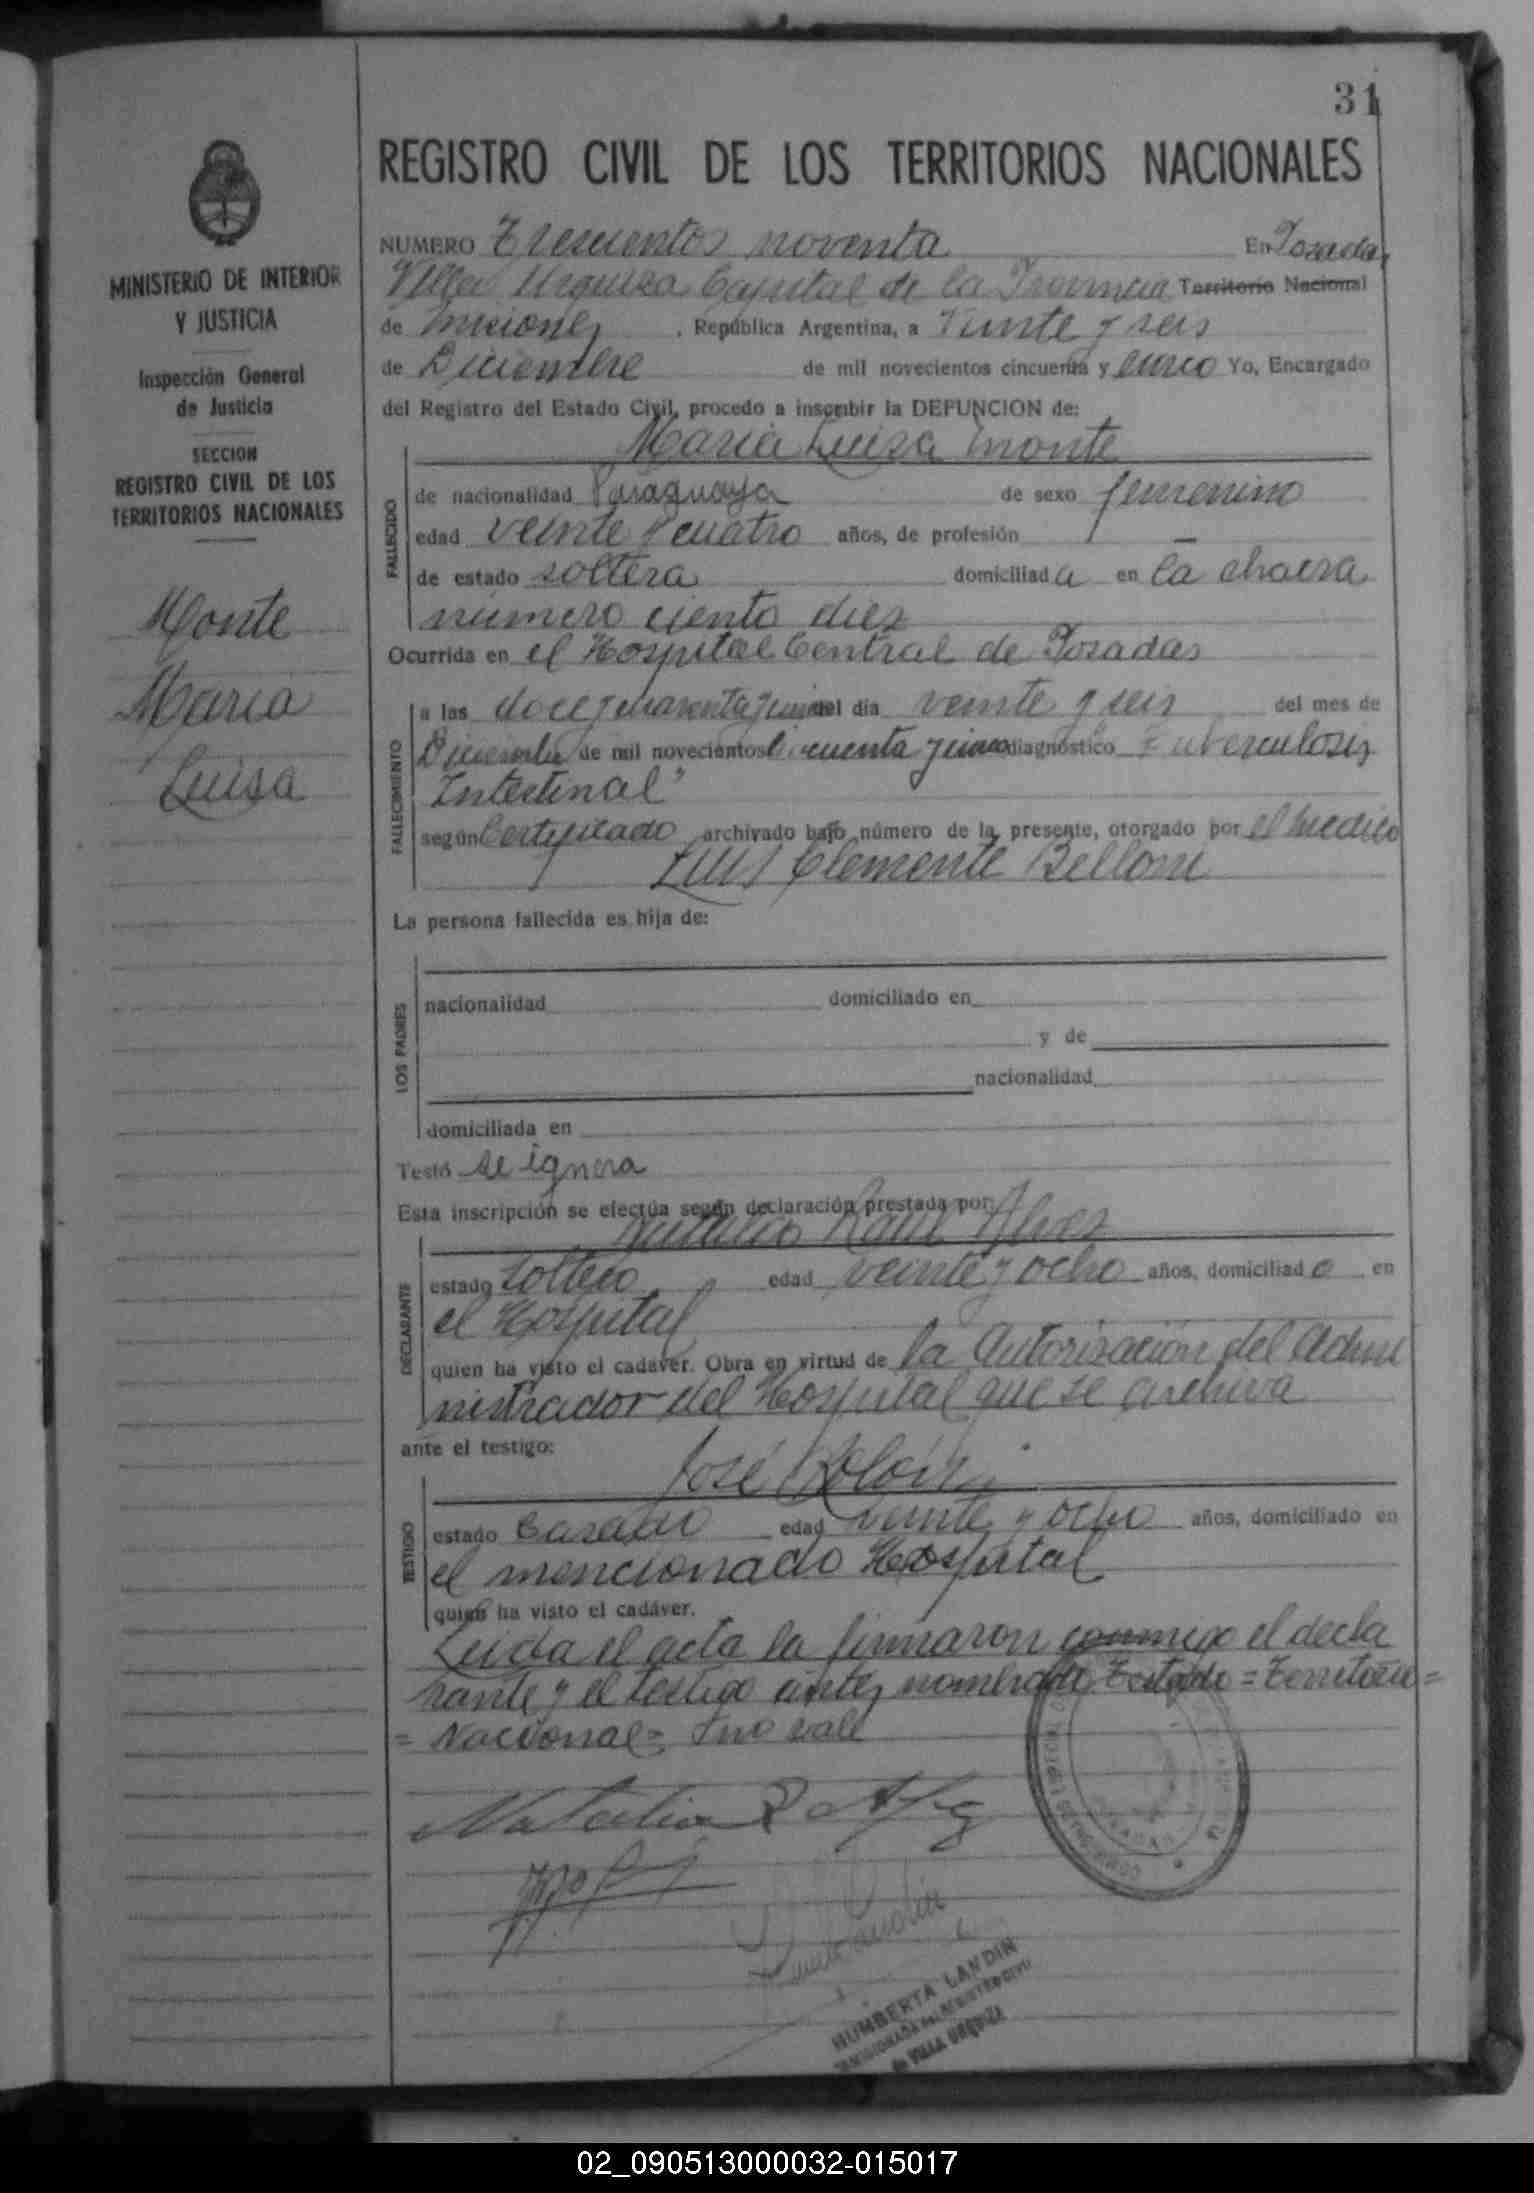 31
REGISTRO CIVIL DE LOS TERRITORIOS NACIONALES
MINISTERIO DE INTERIOR
Y JUSTICIA
Inspección General
de Justicia
SECCION
REGISTRO CIVIL DE LOS
TERRITORIOS NACIONALES
Monte
Maria
Luisa
NUMERO Trescientos noventa En Posadas
Villa Urquiza Capital de la Provincia Territorio Nacional
de Misiones, República Argentina, a Veinte y seis
de Diciembre de mil novecientos cincuenta y cinco Yo, Encargado
del Registro del Estado Civil, procedo a inscribir la DEFUNCION de:
Maria Luisa Monte
FALLECIDO
de nacionalidad Paraguaya de sexo femenino
edad veinte y cuatro años, de profesión —
de estado soltera domiciliada en la chacra
número ciento diez
Ocurrida en el Hospital Central de Posadas
FALLECIMIENTO
a las doce y cuarenta y cinco del día veinte y seis del mes de
Diciembre de mil novecientos cincuenta y cinco diagnóstico "Tuberculosis
Intestinal"
según Certificado archivado bajo número de la presente, otorgado por el medico
Luis Clemente Belloni
La persona fallecida es hija de:
LOS PADRES
nacionalidad domiciliado en
y de
nacionalidad
domiciliada en
Testó se ignora
Esta inscripción se efectúa según declaración prestada por:
Natalio Raul Alvez
DECLARANTE
estado soltero edad veinte y ocho años, domiciliado en
el Hospital
quien ha visto el cadáver. Obra en virtud de la Autorización del Admi
nistrador del Hospital que se archiva
ante el testigo:
José Rolón
TESTIGO
estado Casado edad veinte y ocho años, domiciliado en
el mencionado Hospital
quien ha visto el cadáver.
Leida el acta la firmaron conmigo el decla
rante y el testigo antes nombrado Testado = Territorio =
= Nacional = no vale
Natalio R Alvez
HUMBERTA LANDIN
DEL REGISTRO CIVIL
de VILLA URQUIZA
02_090513000032-015017